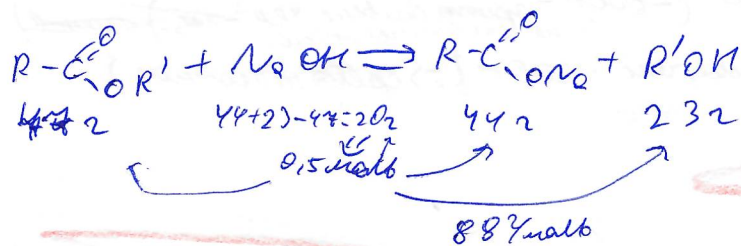 R-C(=O)OR' + NaOH ⇌ R-C(=O)ONa + R'OH
44+23-47=20г 44г 23г
0,5моль
88г/моль